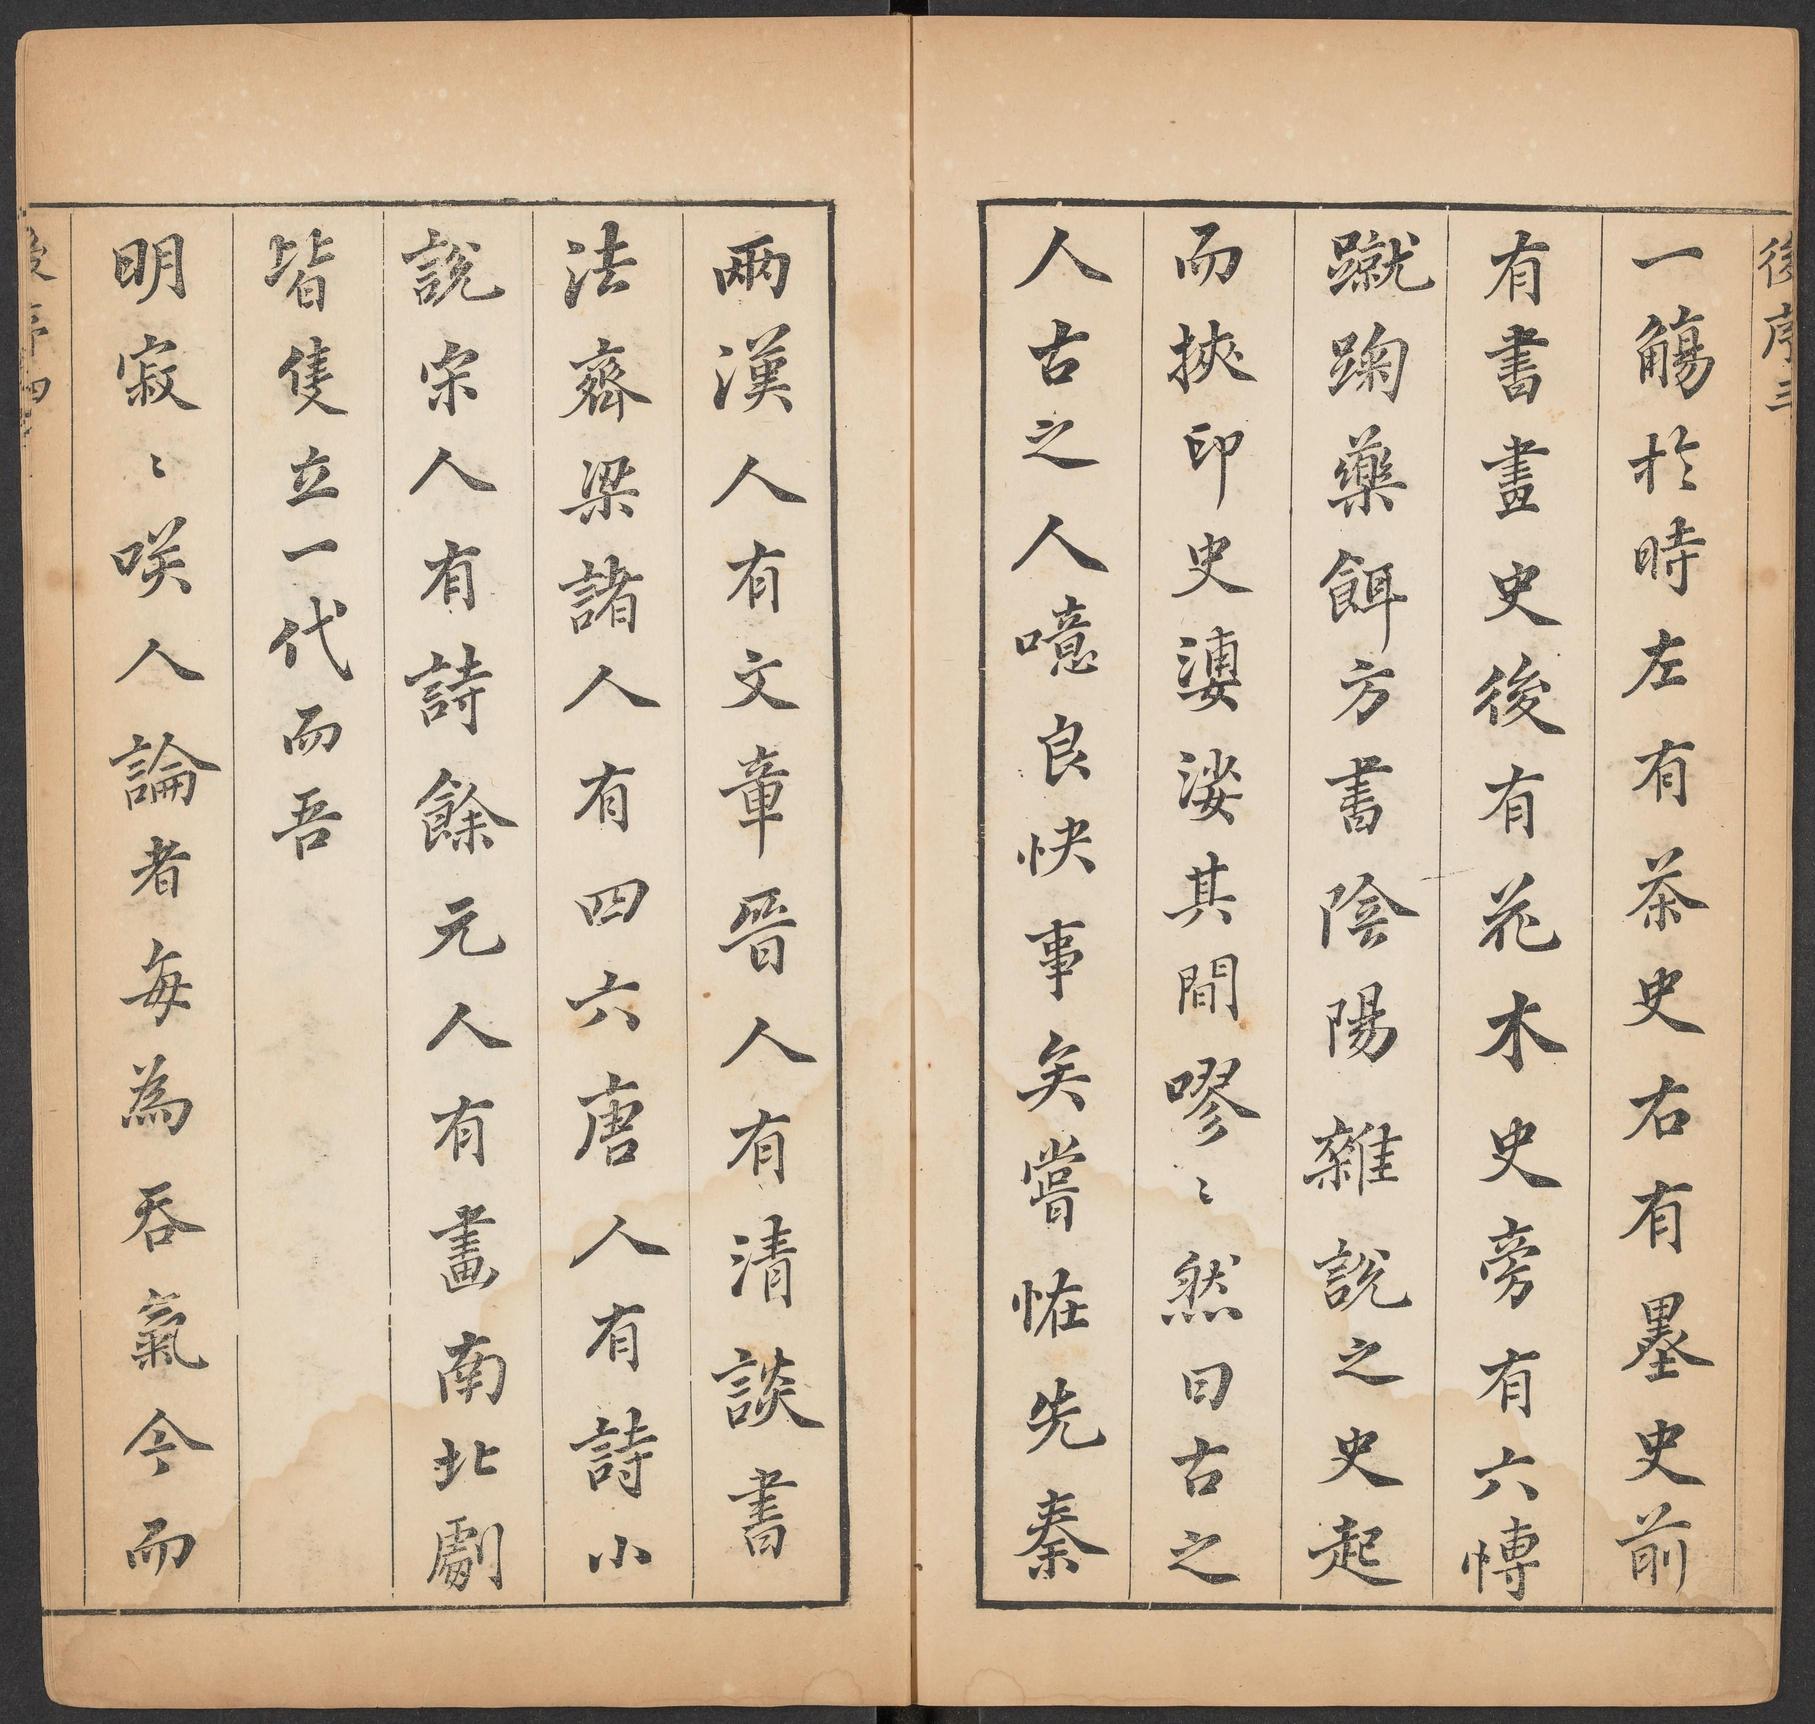 後序三
一觴於時左有茶史右有墨史前
有書畫史後有花木史旁有六博
蹴踘藥餌方書陰陽雜說之史起
而挾印史澷溇其間嘐〻然曰古之
人古之人噫良快事矣嘗恠先秦
兩漢人有文章晉人有清談書
法齊梁諸人有四六唐人有詩小
說宋人有詩餘元人有畫南北劇
皆隻立一代而吾
明寂〻咲人論者每為吞氣今而
後序四